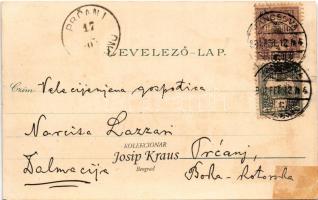 PRČANJ
17
LEVELEZŐ-LAP.
Czím: Velecijenjena gospodjica
Narcisa Lazzari
KOLEKCIONAR
Josip Kraus
Beograd
Prčanj,
Dalmacija
Boka-Kotorska